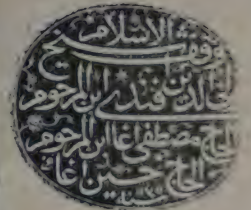 وقف شيخ الاسلام
خالد بن فندي ابن المرحوم
الحاج مصطفى اغا ابن المرحوم
الحاج حسين اغا سنة